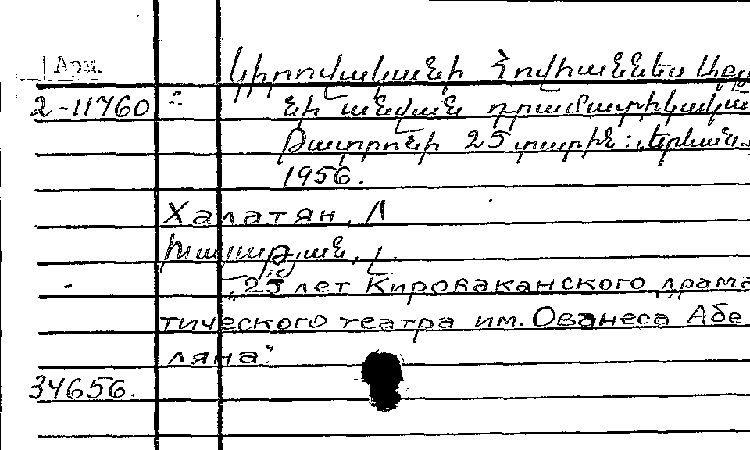 Арм.
Կիրովականի Հովհաննես Աբել
2-11760 նի անվան դրամատիկական
Թատրոնի 25 տարին: Երևան
1956.
Халатян, Л
Խալաթյան, Լ.
„25 лет Кироваканского драма
тического театра им. Ованеса Абе
ляна“
34656.